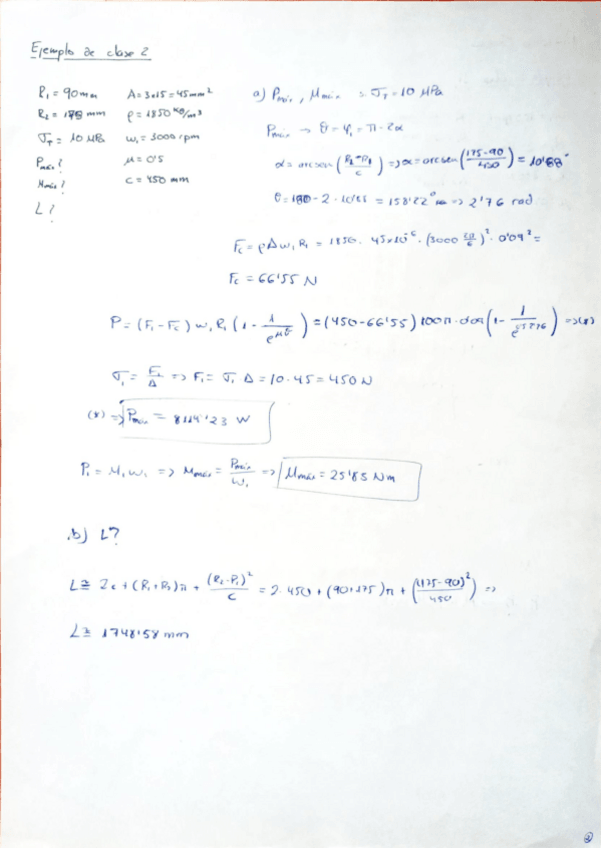 Ejemplo de clase 2
R₁ = 90 mm A = 3x15 = 45 mm²
R₂ = 175 mm ρ = 1850 kg/m³
σ_T = 10 MPa ω₁ = 3000 rpm
Pmáx? μ = 0'5
Mmáx? c = 450 mm
L?
a) Pmáx, Mmáx σ_T = 10 MPa
Pmáx → θ = φ₁ = π - 2α
α = arcsen((R₂-R₁)/c) => α = arcsen((175-90)/450) = 10'88°
θ = 180 - 2 · 10'88 = 158'22° => 2'76 rad
Fc = ρ A ω₁ R₁ = 1850 · 45x10⁻⁶ · (3000 2π/6)² · 0'09² =
Fc = 66'55 N
P = (F₁ - Fc) ω₁ R₁ (1 - 1/e^μθ) = (450 - 66'55) 100π · 0'09 (1 - 1/e^0'5·2'76) => (*)
σ₁ = F₁/A => F₁ = σ₁ A = 10 · 45 = 450 N
(*) => Pmáx = 8119'23 W
P₁ = M₁ ω₁ => Mmáx = Pmáx/ω₁ => Mmáx = 25'85 Nm
b) L?
L ≅ 2c + (R₁+R₂)π + (R₂-R₁)²/c = 2·450 + (90+175)π + ((175-90)²/450) =>
L ≅ 1748'58 mm
2